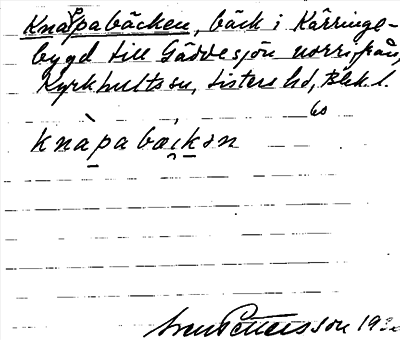 Knåpabäcken, bäck i Käringe-
bygd till Gäddesjön norrifrån,
Kyrkhults sn, Listers hd, Blek. l.
60
knàpabæ̀kən
Sven Petersson 193